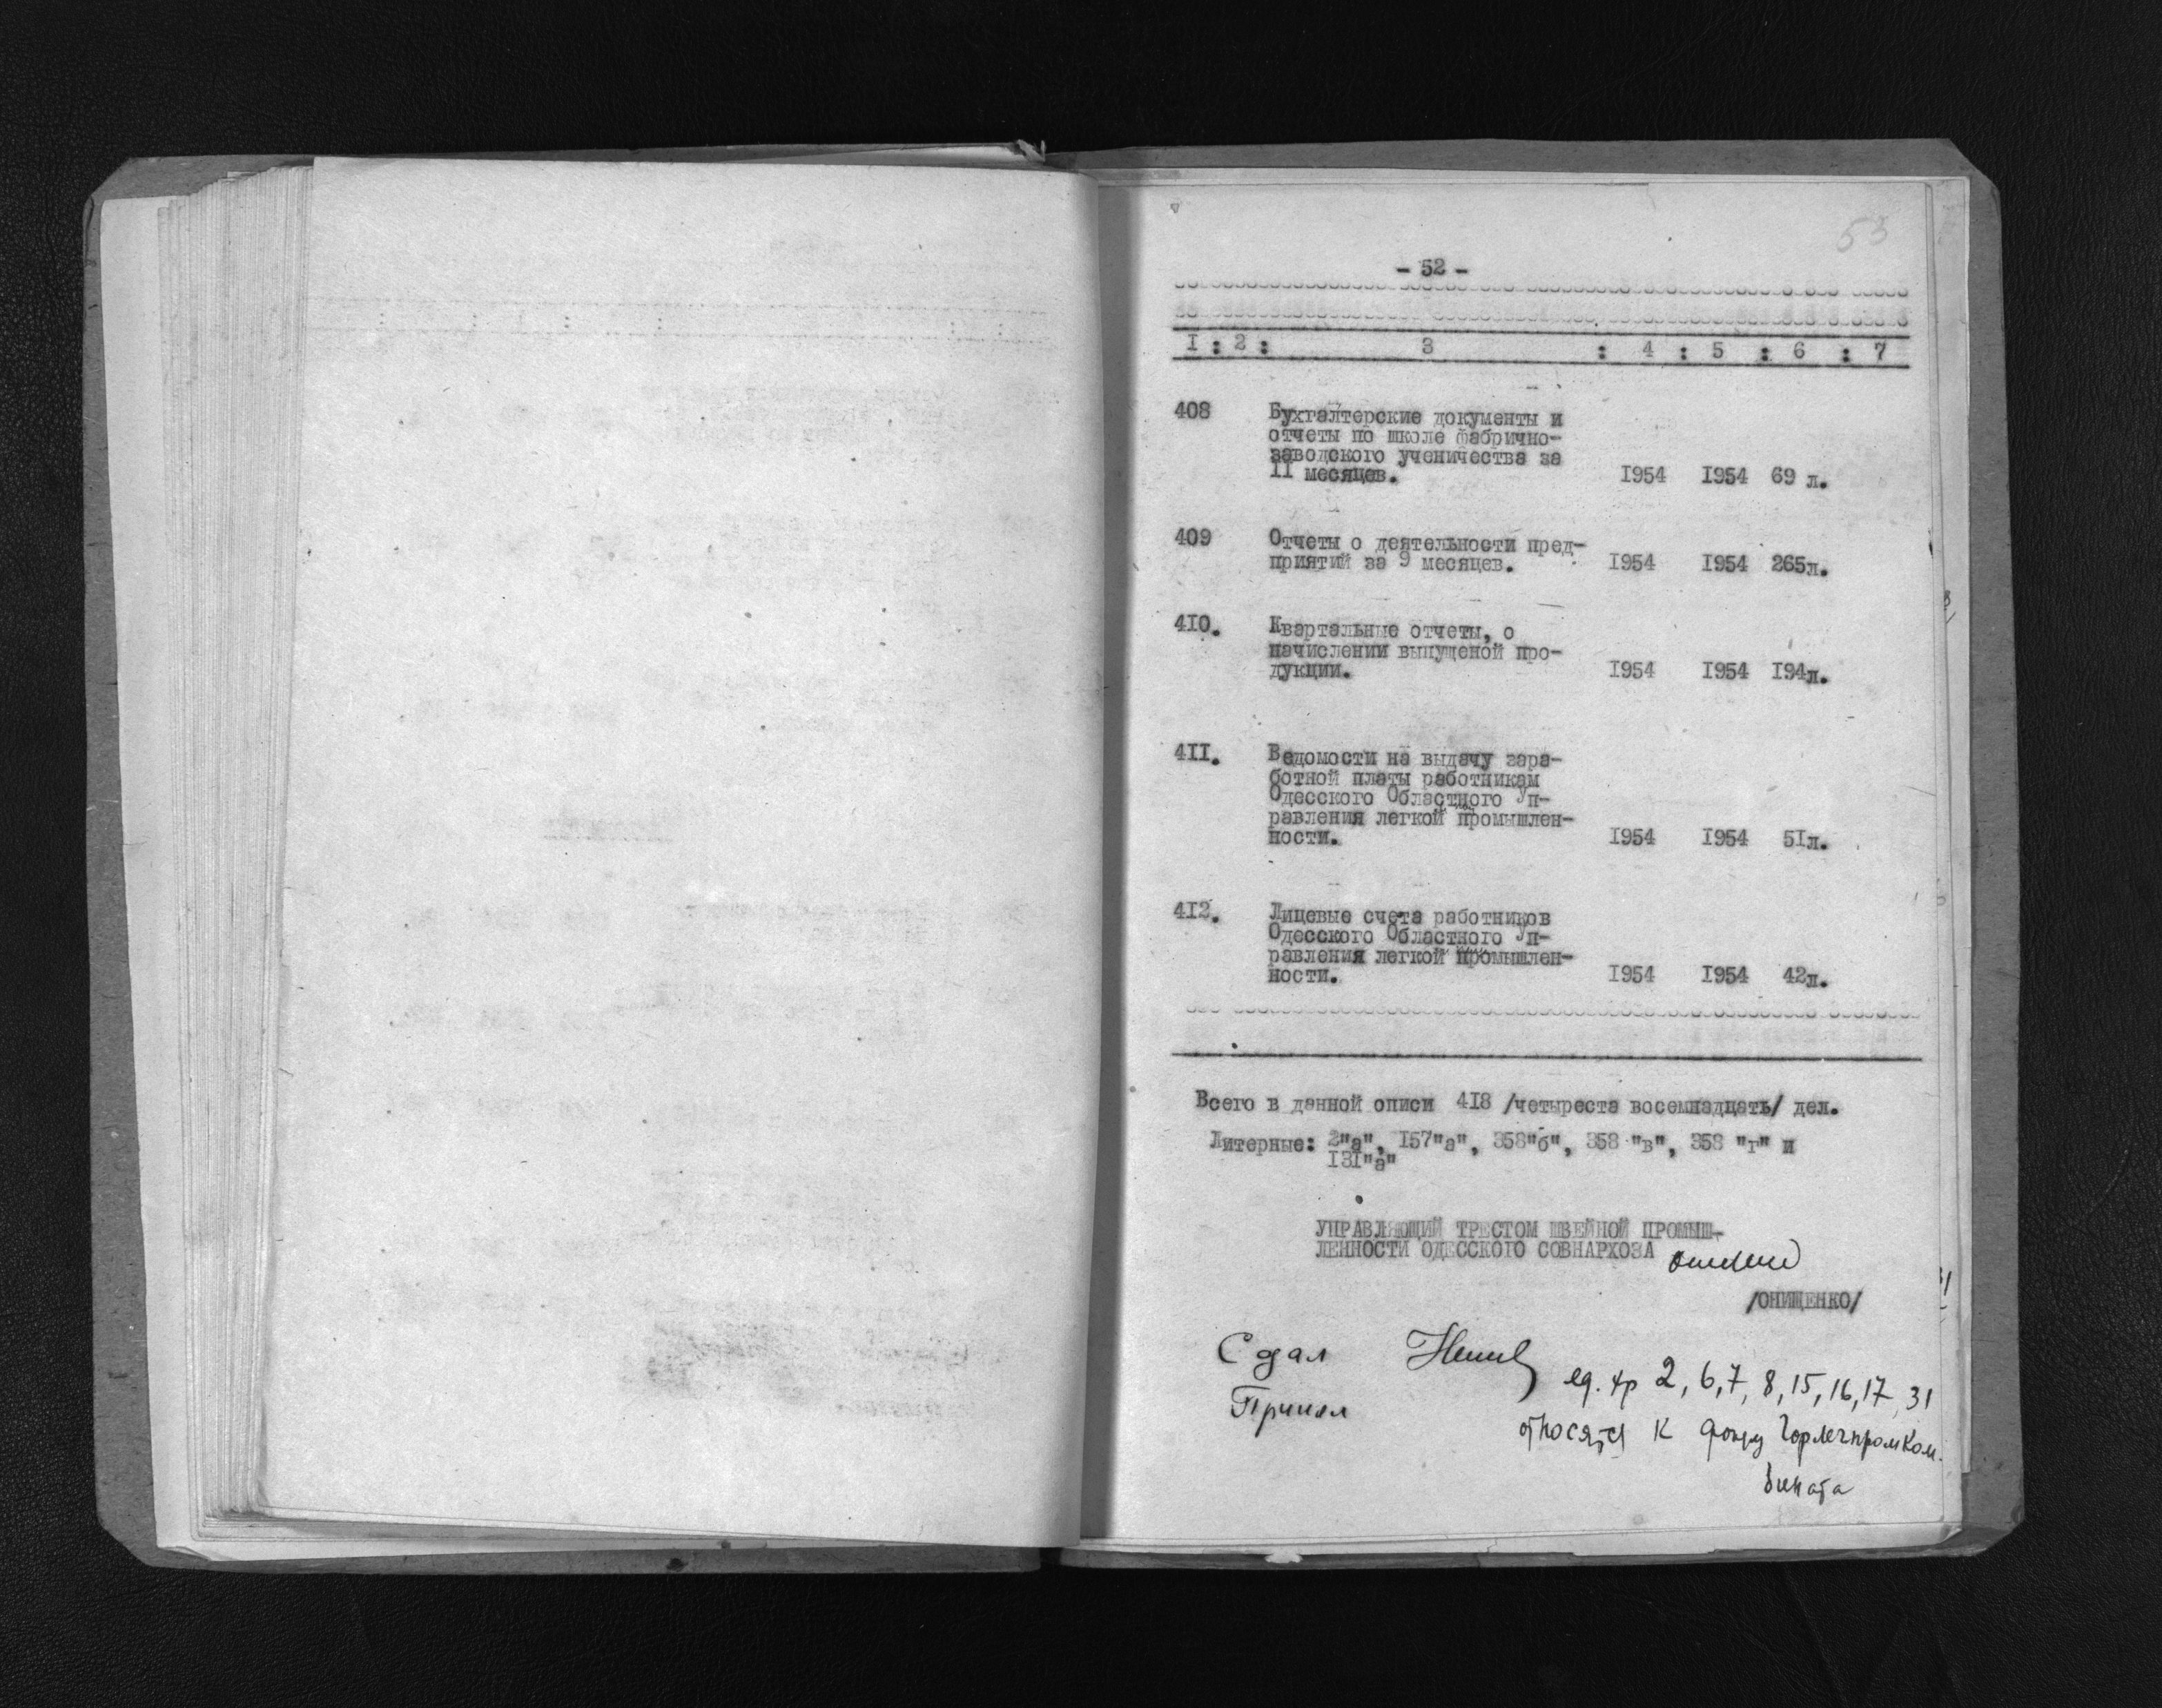 53
- 52 -
I : 2 : 3 : 4 : 5 : 6 : 7
408 Бухгалтерские документы и
отчеты по школе фабрично-
заводского ученичества за
II месяцев. I954 I954 69 л.
409 Отчеты о деятельности пред-
приятий за 9 месяцев. I954 I954 265л.
4I0. Квартальные отчеты, о
начислении выпущеной про-
дукции. I954 I954 I94л.
4II. Ведомости на выдачу зара-
ботной платы работникам
Одесского Областного Уп-
равления легкой промышлен-
ности. I954 I954 5Iл.
4I2. Лицевые счета работников
Одесского Областного Уп-
равления легкой промышлен-
ности. I954 I954 42л.
Всего в данной описи 4I8 /четыреста восемнадцать/ дел.
Литерные: 2"а", I57"а", 358"б", 358 "в", 358 "г" и
I3I"а"
УПРАВЛЯЮЩИЙ ТРЕСТОМ ШВЕЙНОЙ ПРОМЫШ-
ЛЕННОСТИ ОДЕССКОГО СОВНАРХОЗА
/ОНИЩЕНКО/
Сдал
Принял
ед. хр 2, 6, 7, 8, 15, 16, 17, 31
относятся к фонду Горлегпромком-
бината